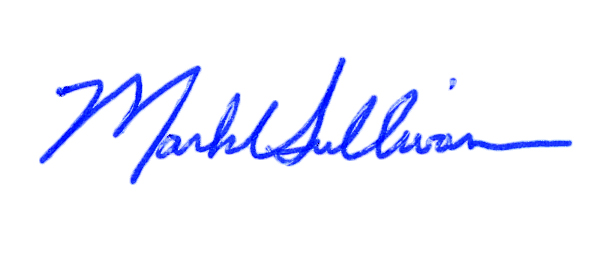 Mark Sullivan